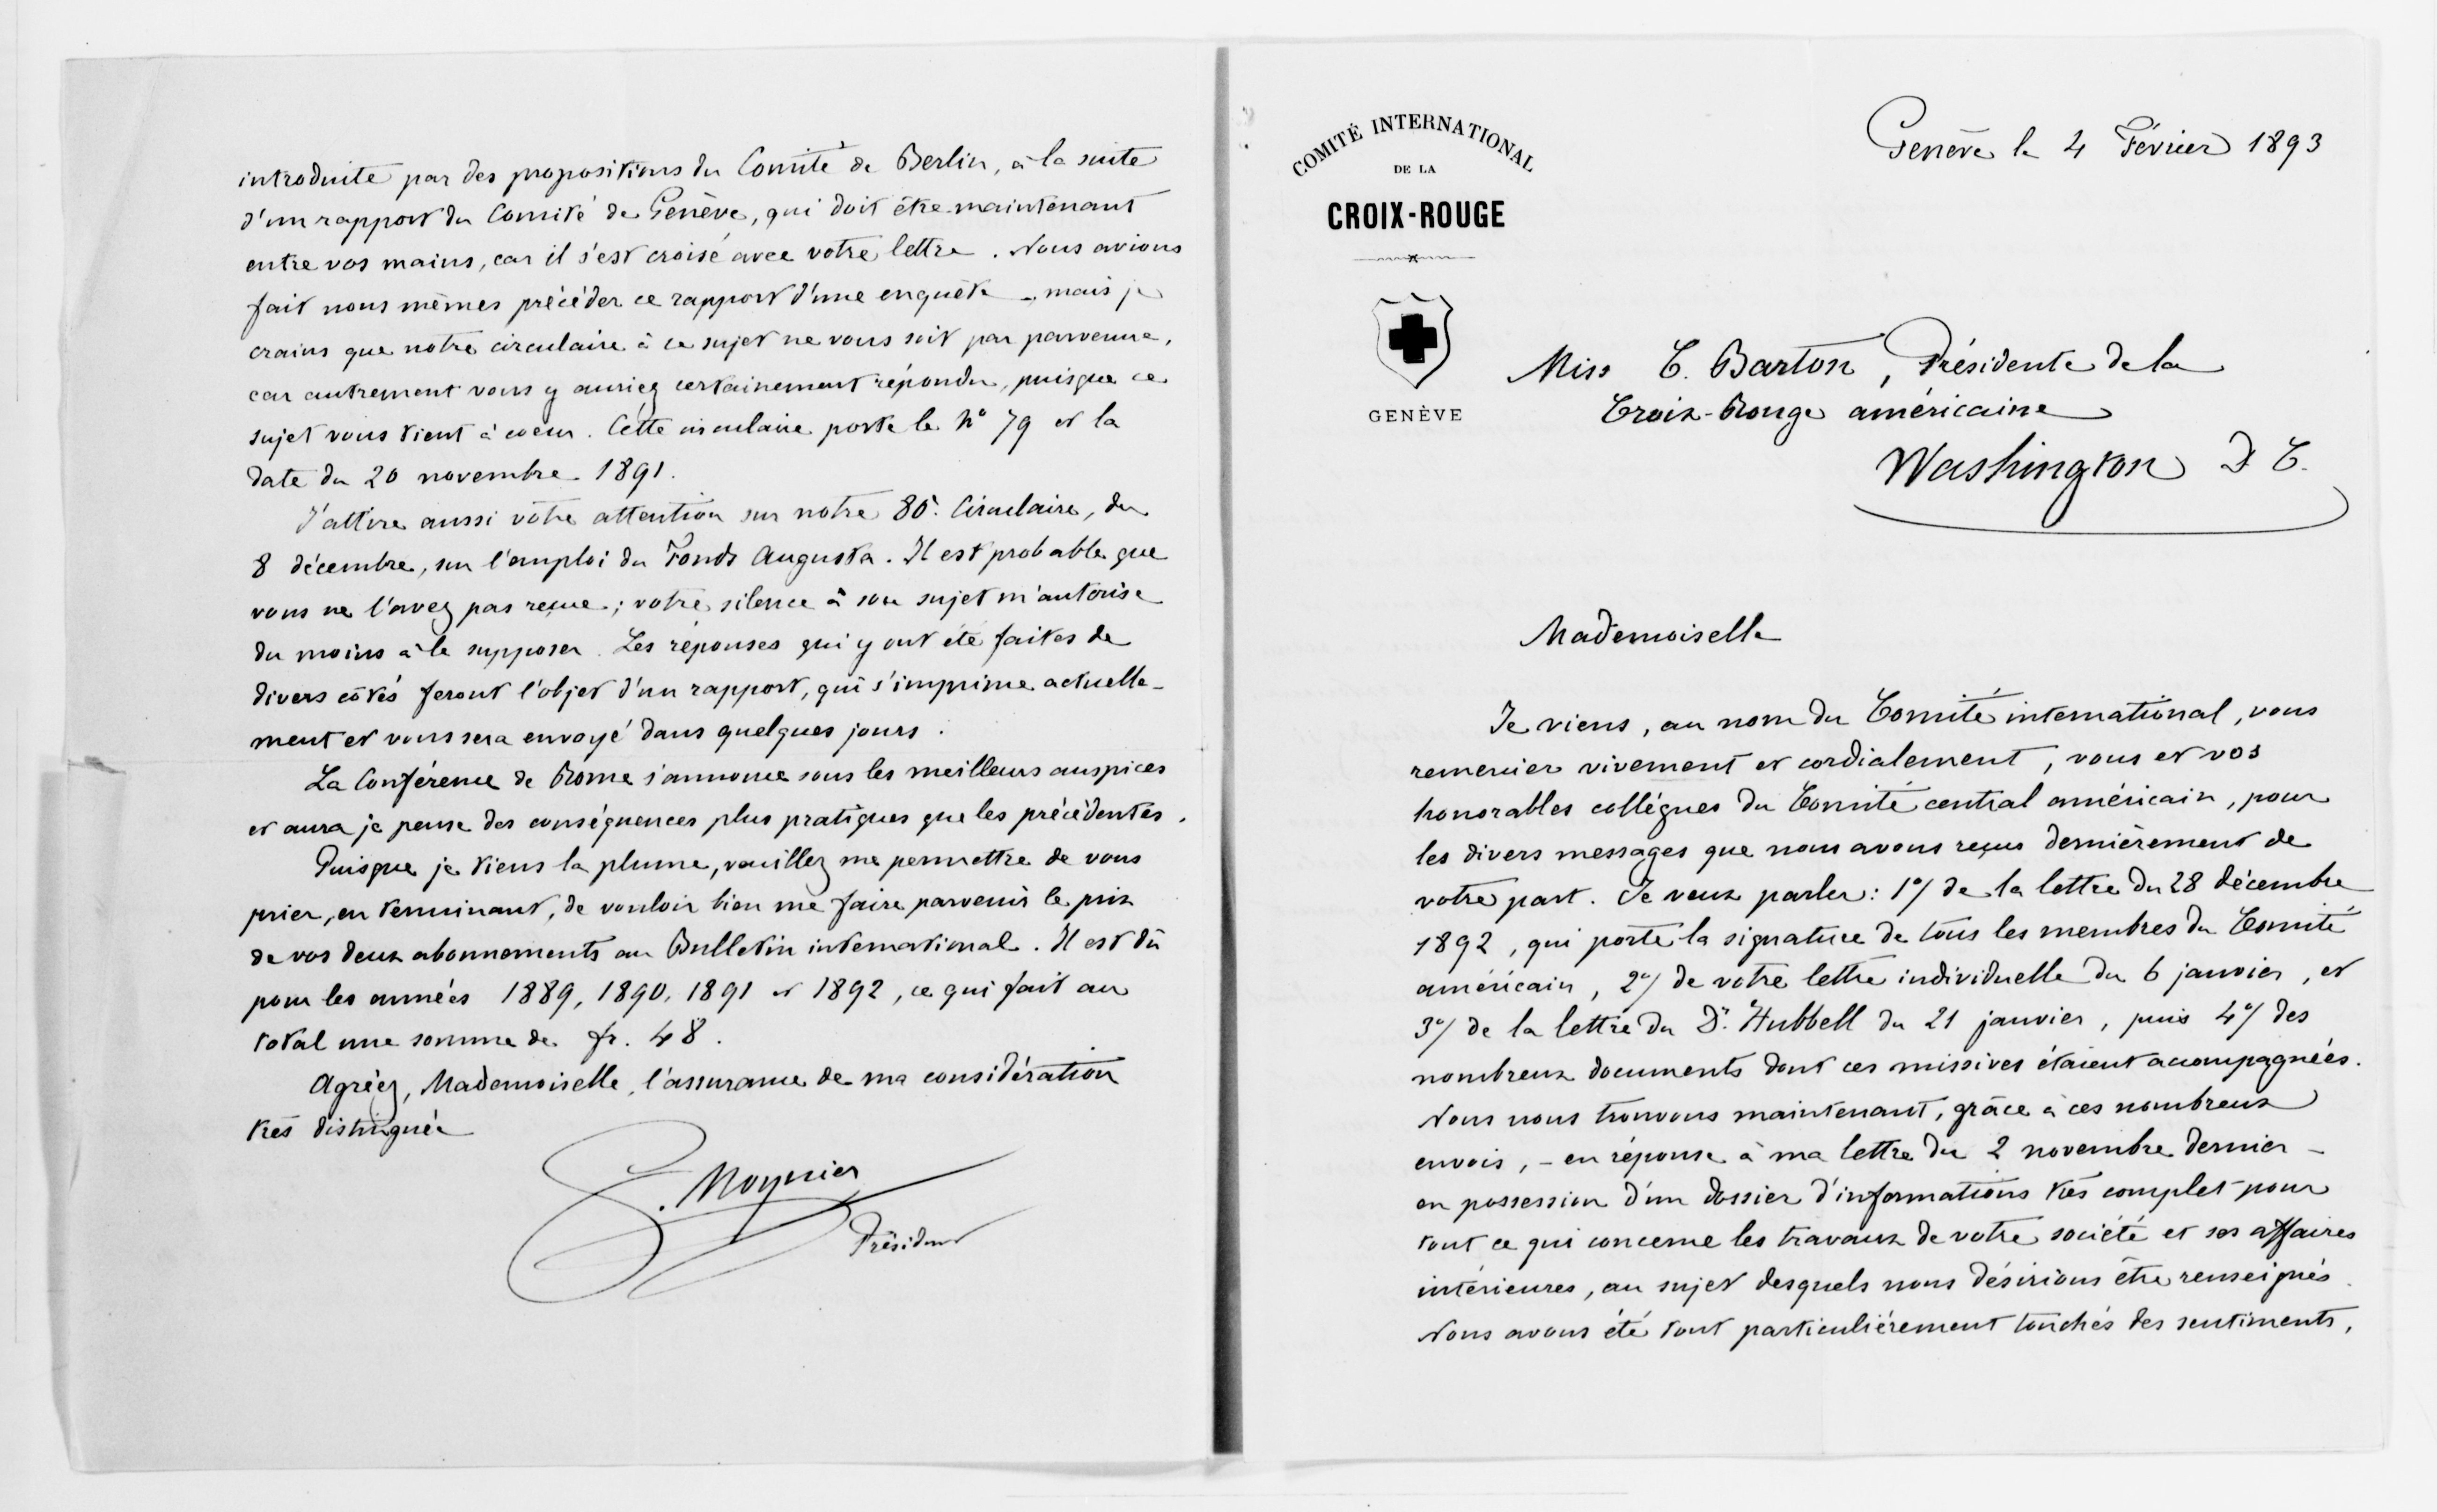 introduite par des propositions du Comité de Berlin, à la suite
d'un rapport du Comité de Genève, qui doit être maintenant
entre vos mains, car il s'est croisé avec votre lettre. Nous avions
fait nous mêmes précéder ce rapport d'une enquête, mais je
crains que notre circulaire à ce sujet ne vous soit pas parvenue,
car autrement vous y auriez certainement répondu, puisque ce
sujet vous tient à cœur. Cette circulaire porte le N° 79 et la
date du 20 novembre 1891.
J'attire aussi votre attention sur notre 80e Circulaire, du
8 décembre, sur l'emploi du Fonds Augusta. Il est probable que
vous ne l'avez pas reçue; votre silence à son sujet m'autorise
du moins à le supposer. Les réponses qui y ont été faites de
divers côtés feront l'objet d'un rapport, qui s'imprime actuelle-
ment et vous sera envoyé dans quelques jours.
La Conférence de Rome s'annonce sous les meilleurs auspices
et aura je pense des conséquences plus pratiques que les précédentes.
Puisque je tiens la plume, veuillez me permettre de vous
prier, en terminant, de vouloir bien me faire parvenir le prix
de vos deux abonnements au Bulletin international. Il est dû
pour les années 1889, 1890, 1891 et 1892, ce qui fait au
total une somme de fr. 48.
Agréez, Mademoiselle, l'assurance de ma considération
très distinguée
G. Moynier
Président
COMITÉ INTERNATIONAL
DE LA
CROIX-ROUGE
GENÈVE
Genève le 4 Février 1893
Miss C. Barton, Présidente de la
Croix-Rouge américaine
Washington D C.
Mademoiselle
Je viens, au nom du Comité international, vous
remercier vivement et cordialement, vous et vos
honorables collègues du Comité central américain, pour
les divers messages que nous avons reçus dernièrement de
votre part. Je veux parler: 1°/ de la lettre du 28 décembre
1892, qui porte la signature de tous les membres du Comité
américain, 2°/ de votre lettre individuelle du 6 janvier, et
3°/ de la lettre du Dr. Hubbell du 21 janvier, puis 4°/ des
nombreux documents dont ces missives étaient accompagnées.
Nous nous trouvons maintenant, grâce à ces nombreux
envois, - en réponse à ma lettre du 2 novembre dernier -
en possession d'un dossier d'informations très complet pour
tout ce qui concerne les travaux de votre société et ses affaires
intérieures, au sujet desquels nous désirions être renseignés.
Nous avons été tout particulièrement touchés des sentiments,